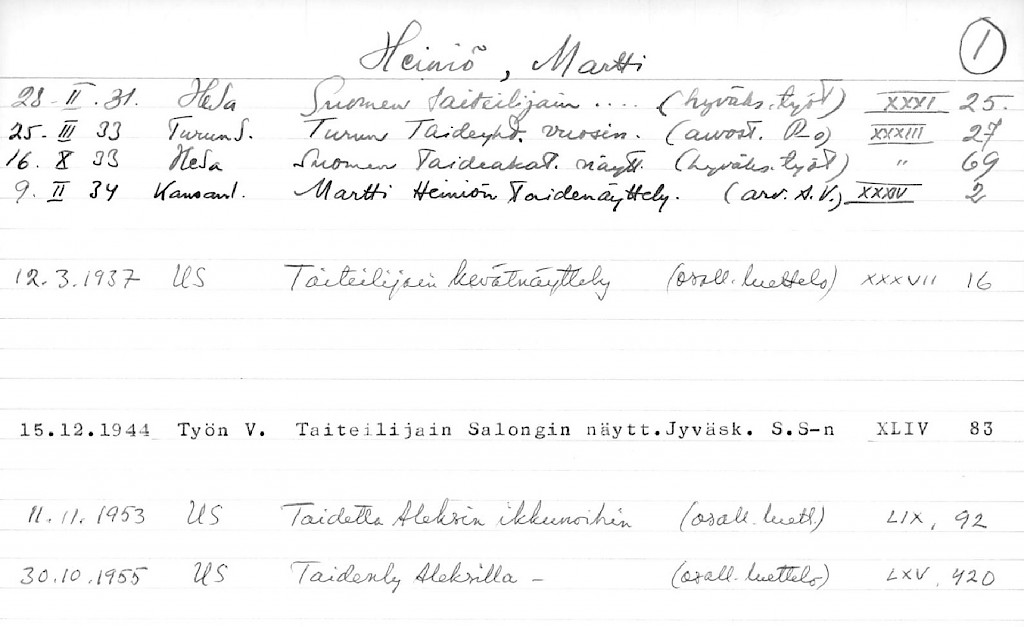 Heiniö, Martti 1
28-II.31. HeSa Suomen Taiteilijain .... (hyväks. työt) XXXI 25.
25-III 33 TurunS. Turun Taideyhd. vuosin. (arvost. R-o) XXXIII 27
16. X 33 HeSa Suomen Taideakat. näytt. (hyväks. työt) " 69
9. II 34 Kansanl. Martti Heiniön Taidenäyttely. (arv. A.V.) XXXIV 2
12.3.1937 US Taiteilijain kevätnäyttely (osall. luettelo) XXXVII 16
15.12.1944 Työn V. Taiteilijain Salongin näytt.Jyväsk. S.S-n XLIV 83
11.11.1953 US Taidetta Aleksin ikkunoihin (osall. luett.) LIX, 92
30.10.1955 US Taidenly Aleksilla - (osall. luettelo) LXV, 420